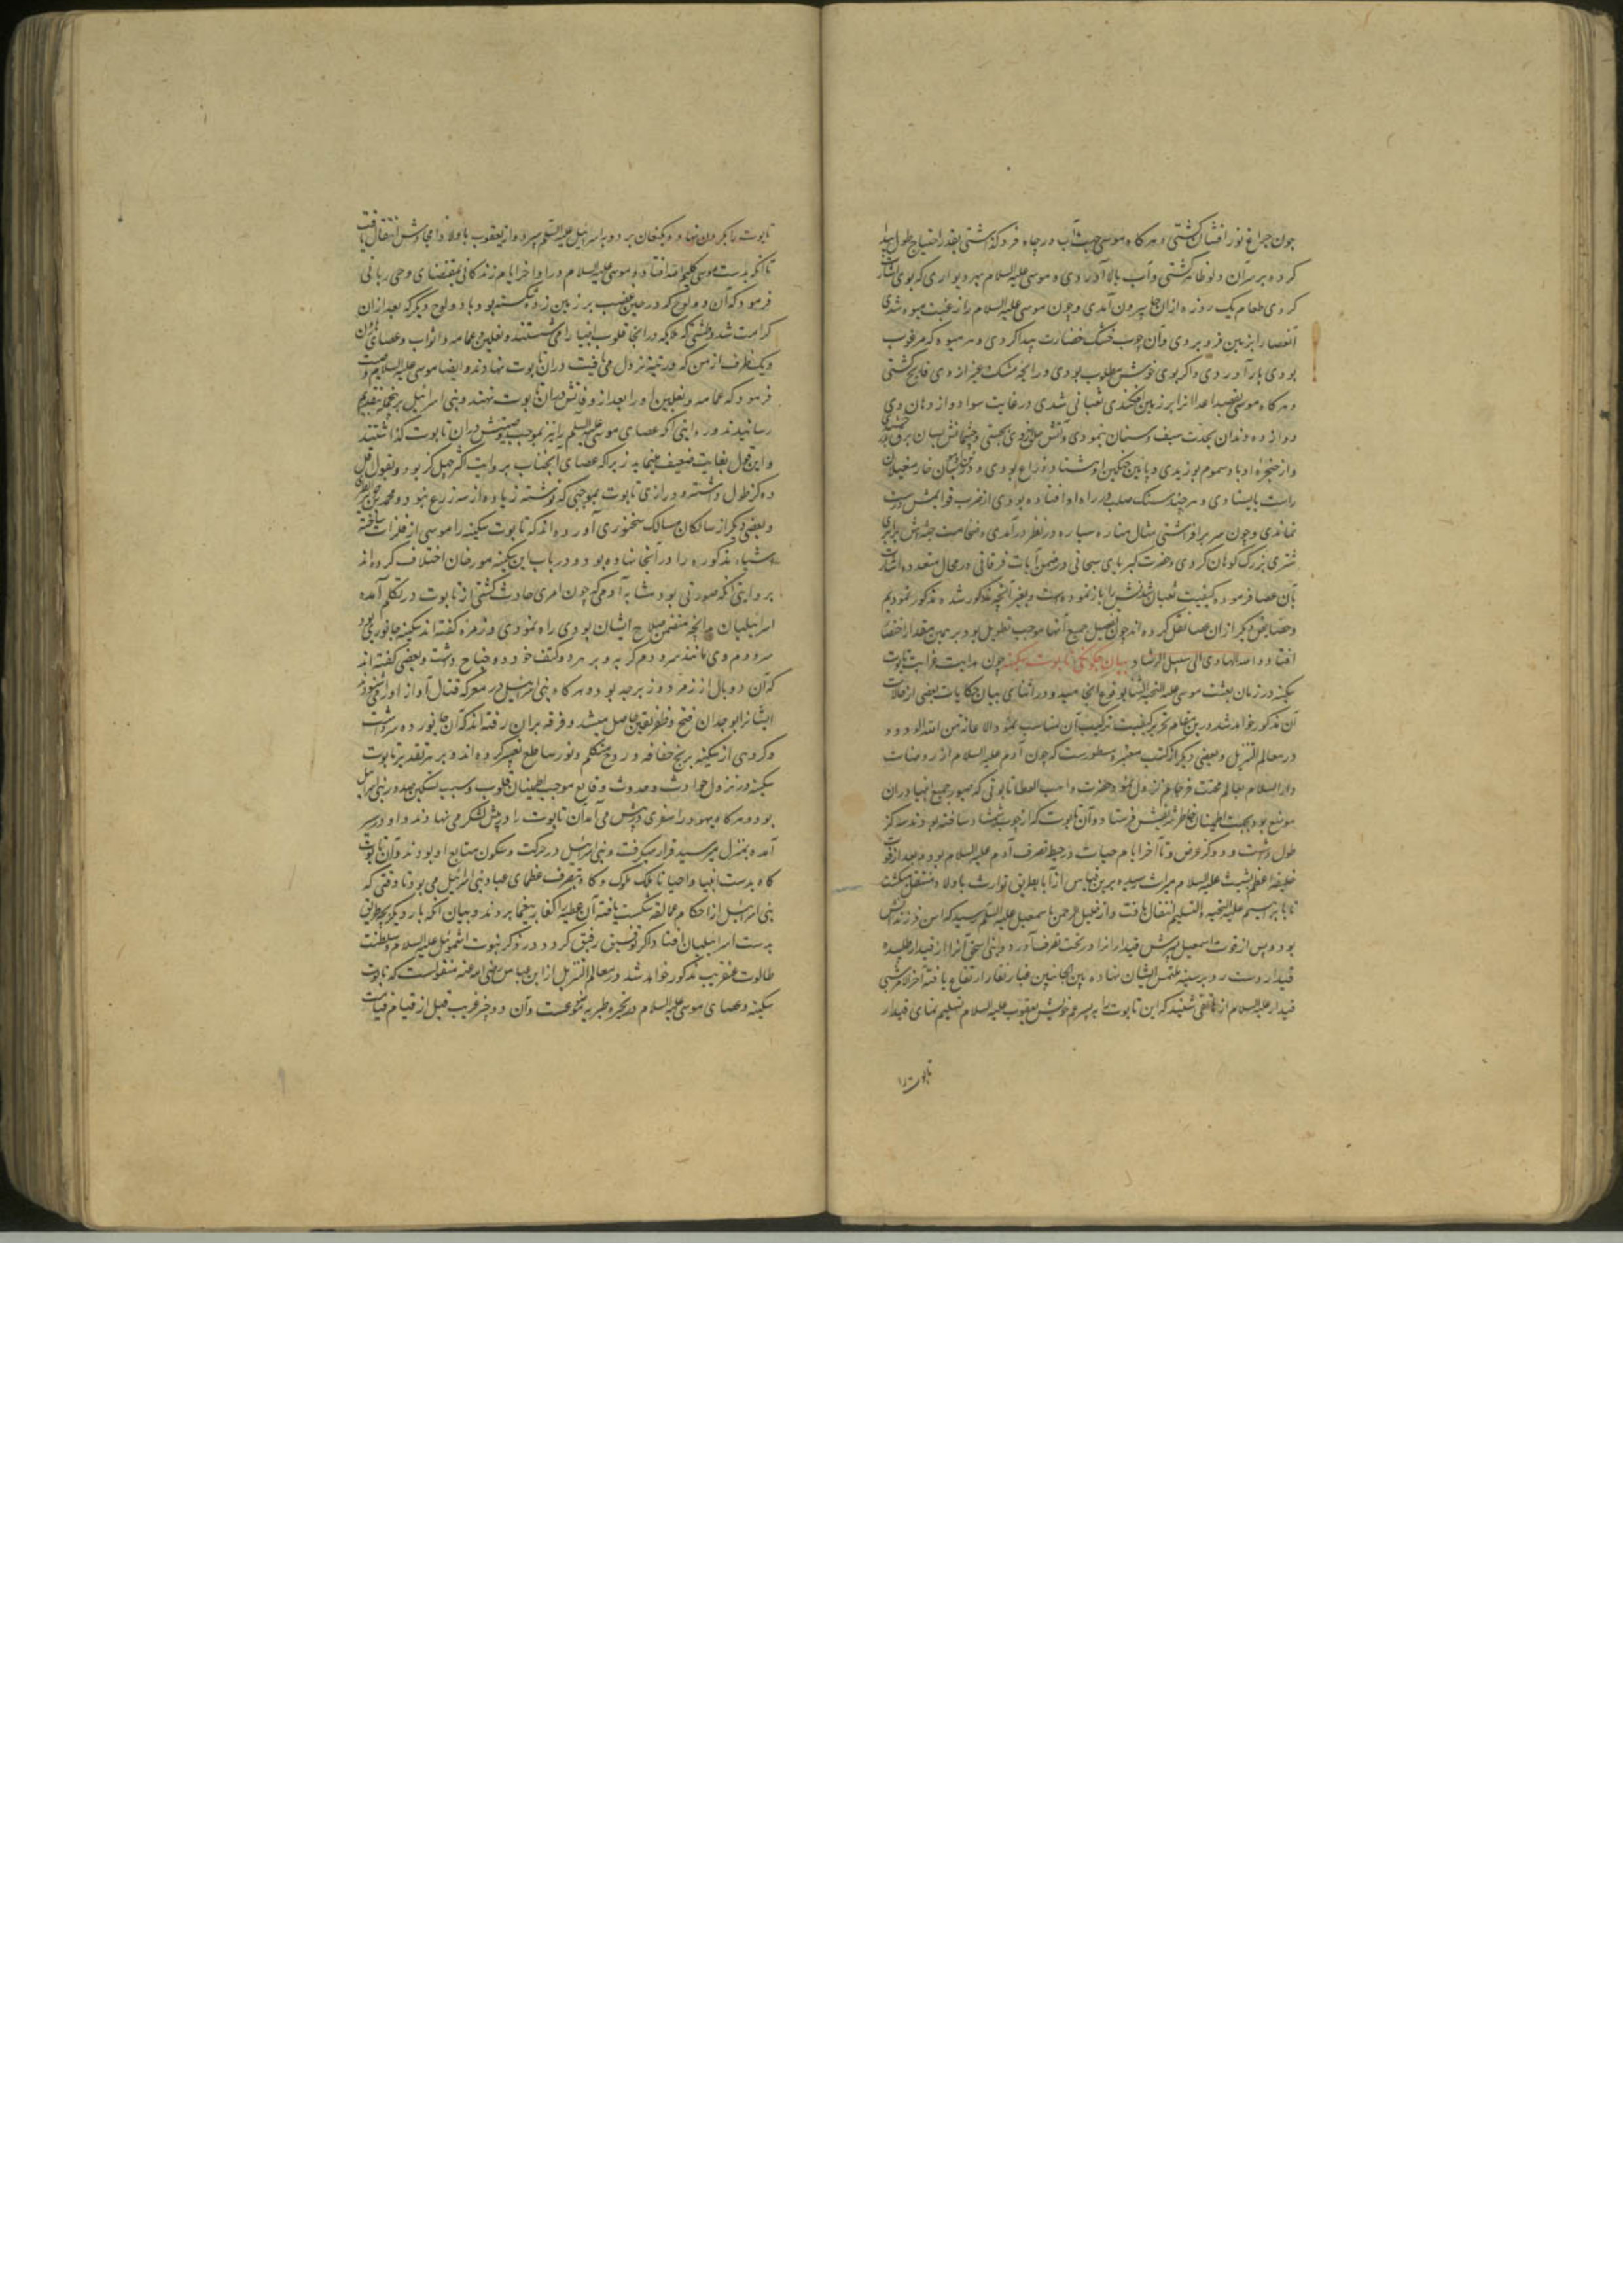 چون چراغ نور افشان گشتی و هر کاه موسی جهت آب در چاه فرو گذاشتی بقدر احتیاج طول پیدا
کرده بر سر آن دلو ظاهر گشتی و آب بالا آوردی و موسی علیه السلام بهر دیواری که بوی اشارت
کردی طعام یک روزه از آن محل بیرون آمدی و چون موسی علیه السلام را رغبت میوه شدی
آنعصا را بزمین فرو بردی و آن چوب خشک خضارت پیدا کردی و هر میوه که مرغوب
بودی بار آوردی و اگر بوی خوش مطلوب بودی و رایحه مشک و عنبر از وی فایح گشتی
و هر کاه موسی بقصد اعدا آنرا بر زمین افکندی ثعبانی شدی در غایت سواد و از دهان وی
دوازده دندان بحدت سیف و سنان نمودی و آتش از وی بجستی و چشمانش بسان برق درخشیدی
و از حنجره او باد سموم بوزیدی و پایین چنکین او هشتاد ذراع بودی و دندان بسان خار مغیلان
راست بایستادی و هر چند سنک صلب در راه او افتاده بودی از ضرب قوایمش درست
نماندی و چون سر بر افراشتی مثال مناره سیاه در نظر در آمدی و ضخامت جثه‌اش برابر
شتری بزرک کوهان کردی و حضرت کبریای سبحانی در ضمن آیات فرقانی در محال متعدده اشارت
بآن عصا فرموده کیفیت ثعبان شدنش را باز نموده است و بغیر آنچه مذکور شده مذکور نمودیم
و خصایص دیگر از آن عصا نقل کرده اند چون تفصیل جمیع آنها موجب تطویل بود بر همین مقدار اختصار
افتاد و الله الهادی الی سبیل الرشاد بیان چگونگی تابوت سکینه چون بدایت غرابت تابوت
سکینه در زمان بعثت موسی علیه التحیه و الثنا بوقوع انجامید و در اثنای بیان حکایات بعضی از حالات
آن مذکور خواهد شد در این مقام تحریر کیفیت ترکیب آن مناسب نمود و الاعانة من الله الودود
در معالم التنزیل و بعضی دیگر از کتب معتبره مسطورست که چون آدم علیه السلام از روضات
دار السلام بعالم محنت فرجام نزول نمود حضرت واهب العطایا تابوتی که صور جمیع انبیا در آن
موضع بود بجهت اطمینان خاطر شریفش فرستاد و آن تابوت که از چوب شمشاد ساخته بودند سه گز
طول داشت و دو گز عرض و تا آخر ایام حیات در حیطه تصرف آدم علیه السلام بود و بعد از فوت
خلیفه اعظم بشیث علیه السلام میراث رسیده برین قیاس از آبا بطریق توارث باولاد منتقل میگشت
تا بابراهیم علیه التحیه و التسلیم انتقال یافت و از خلیل الرحمن باسمعیل علیه السلام رسید که اسن فرزندانش
بود و پس از فوت اسمعیل پسرش قیدار آنرا در تحت تصرف آورد و بنی اسحق آنرا از قیدار طلبیده
قیدار دست رد بر سینه ملتمس ایشان نهاده بین الجانبین غبار نقار ارتفاع یافته آخر الامر شبی
قیدار علیه السلام از هاتفی شنید که این تابوت را به پسر عم خویش یعقوب علیه السلام تسلیم نمای قیدار
تابوت را
تابوت را بگردون نهاد و بکنعان برد و به اسرائیل علیه السلام سپرد و از یعقوب باولاد و احفادش انتقال یافت
تا آنکه بدست موسی کلیم الله افتاد و موسی علیه السلام در اواخر ایام زندگانی بمقتضای وحی ربانی
فرمود که آن دو لوح که در حین غضب بر زمین زده شکسته بود با دو لوح دیگر که بعد از آن
کرامت شد و طشتی که ملایکه در آنجا قلوب انبیا را می شستند و نعلین و عمامه و اثواب و عصای هرون
و یک ظرف از من که در تیه نزول می یافت در آن تابوت نهادند و ایضا موسی علیه السلام وصیت
فرمود که عمامه و نعلین او را بعد از وفاتش در آن تابوت نهند و بنی اسرائیل بر نهج بتقدیم
رسانیدند و روایتی آنکه عصای موسی علیه السلام را نیز بموجب وصیتش در آن تابوت گذاشتند
و این قول بغایت ضعیف مینماید زیرا که عصای آنجناب بروایت اکثر چهل گز بود و بقول اقل
ده گز طول داشته و درازی تابوت بموجبی که نوشته زیاده از سه زرع نبود و محمد بن جریر الطبری
و بعضی دیگر از سالکان مسالک سخنوری آورده اند که تابوت سکینه را موسی از فلزات ساخته
اشیاء مذکوره را در آنجا نهاده بود و در باب این سکینه مورخان اختلاف کرده اند
بروایتی آنکه صورتی بود مشابه آدمی که چون امری حادث گشتی از تابوت در تکلم آمده
اسرائیلیان را بآنچه متضمن صلاح ایشان بودی راه نمودی و زمره گفته اند سکینه جانوری بود
سر و دم وی مانند سر و دم گربه و بر هر دو کتف خود دو جناح داشت و بعضی گفته اند
که آن دو بال از زمرد و زبرجد بود و هر کاه بنی اسرائیل در معرکه قتال آواز او را شنیدند
ایشانرا بوجدان فتح و ظفر یقین حاصل میشد و فرقه بر آن رفته اند که آن جانور ده سر داشت
و گروهی از سکینه بریح خفافه و روح متکلم و نور ساطع تعبیر کرده اند و بر هر تقدیر تابوت
سکینه در نزول حوادث و حدوث وقایع موجب اطمینان قلوب و سبب تسکین صدور بنی اسرائیل
بود و هر کاه یهود را سفری در پیش می آمد آن تابوت را در پیش لشکر می نهادند و او در سیر
آمده بمنزل میرسید قرار میگرفت و بنی اسرائیل در حرکت و سکون متابع او بودند و آن تابوت
کاه بدست انبیا و احیانا بملک ملوک و کاه بتصرف عظمای عباد بنی اسرائیل می بود تا وقتی که
بنی اسرائیل از حکام عمالقه شکست یافته آن عطیه را کفار به یغما بردند و بیان آنکه بار دیگر بچه طریق
بدست اسرائیلیان افتاد اگر توفیق رفیق گردد در ذکر نبوت اشموئیل علیه السلام و سلطنت
طالوت عنقریب مذکور خواهد شد و در معالم التنزیل از ابن عباس رضی الله عنه منقولست که تابوت
سکینه و عصای موسی علیه السلام در بحیره طبریه موضوعست و آن دو چیز غریب قبل از قیام قیامت